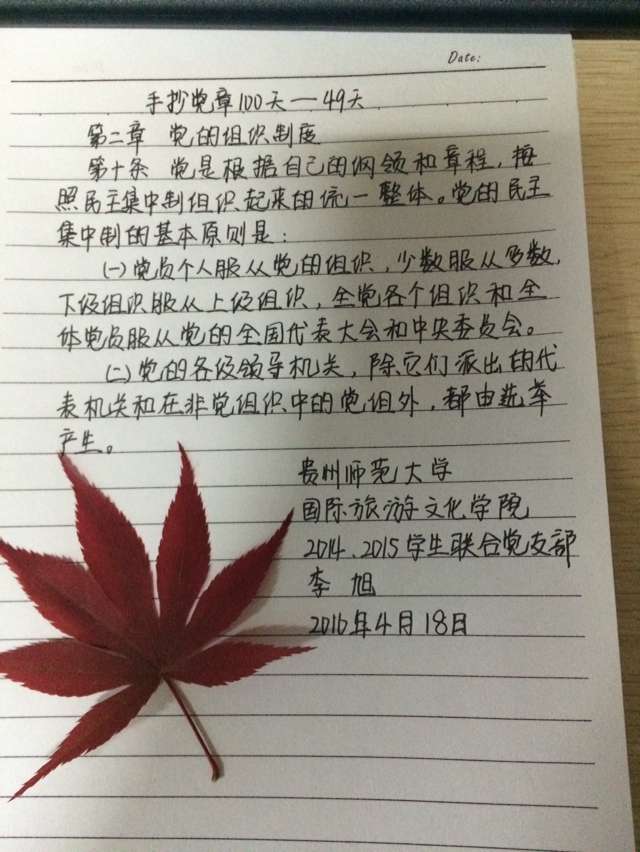 Date:
手抄党章100天—49天
第二章 党的组织制度
第十条 党是根据自己的纲领和章程，按
照民主集中制组织起来的统一整体。党的民主
集中制的基本原则是：
(一)党员个人服从党的组织，少数服从多数，
下级组织服从上级组织，全党各个组织和全
体党员服从党的全国代表大会和中央委员会。
(二)党的各级领导机关，除它们派出的代
表机关和在非党组织中的党组外，都由选举
产生。
贵州师范大学
国际旅游文化学院
2014、2015学生联合党支部
李旭
2016年4月18日